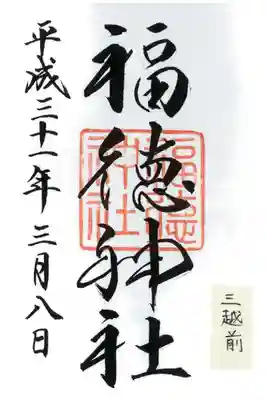 福徳神社
平成三十一年三月八日
三越前
福徳神社